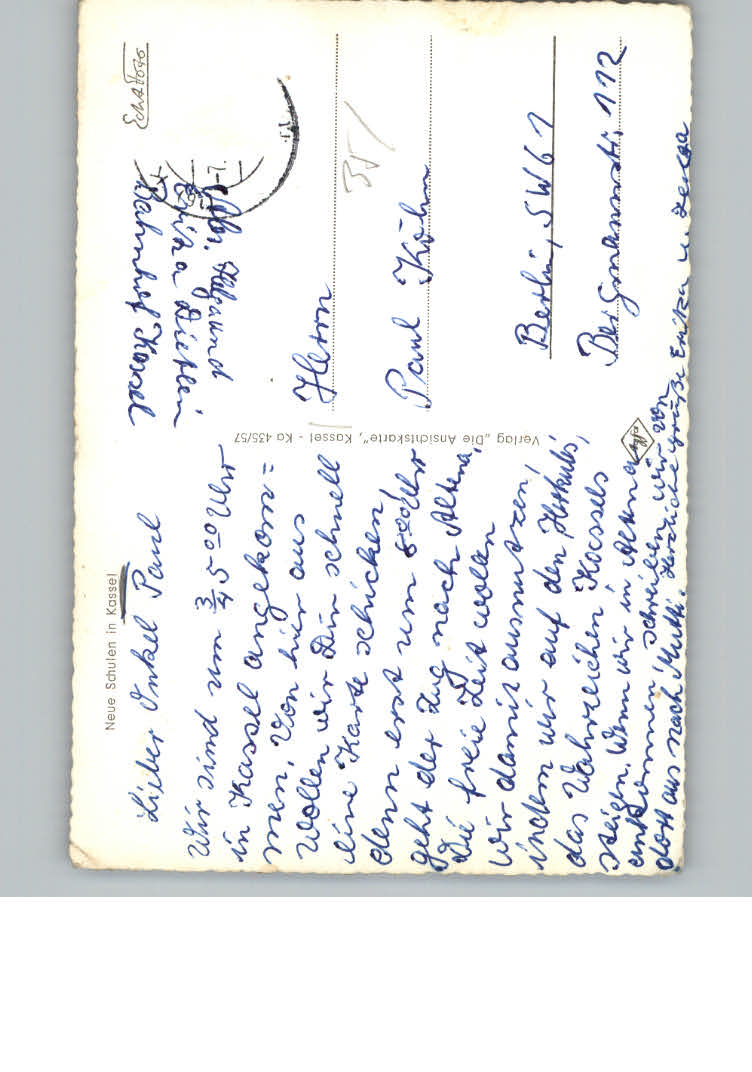 Neue Schulen in Kassel
Lieber Onkel Paul
Wir sind um 3/4 5 00 Uhr
in Kassel angekom=
men. Von hier aus
wollen wir Dir schnell
eine Karte schicken!
denn erst um 8 20 Uhr
geht der Zug nach Altena,
Die freie Zeit wollen
wir damit ausnutzen!
indem wir auf den Herkules,
das Wahrzeichen Kassels
steigen. Wenn wir in Altena
ankommen schreiben wir von
dort aus nach Mutti. Herzliche Grüße Erika u.
Verlag „Die Ansichtskarte“, Kassel - Ka 435/57
Agfa
Echt Foto
Abs. und
Erika
Bahnhof Kassel
351
Herrn
Paul Köhn
Berlin, SW 61
Bergmannstr. 112